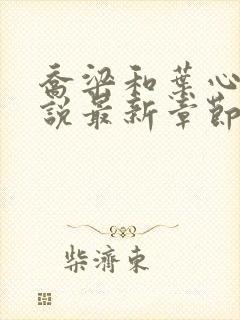 喬梁和葉心
說最新章節
柴濟東